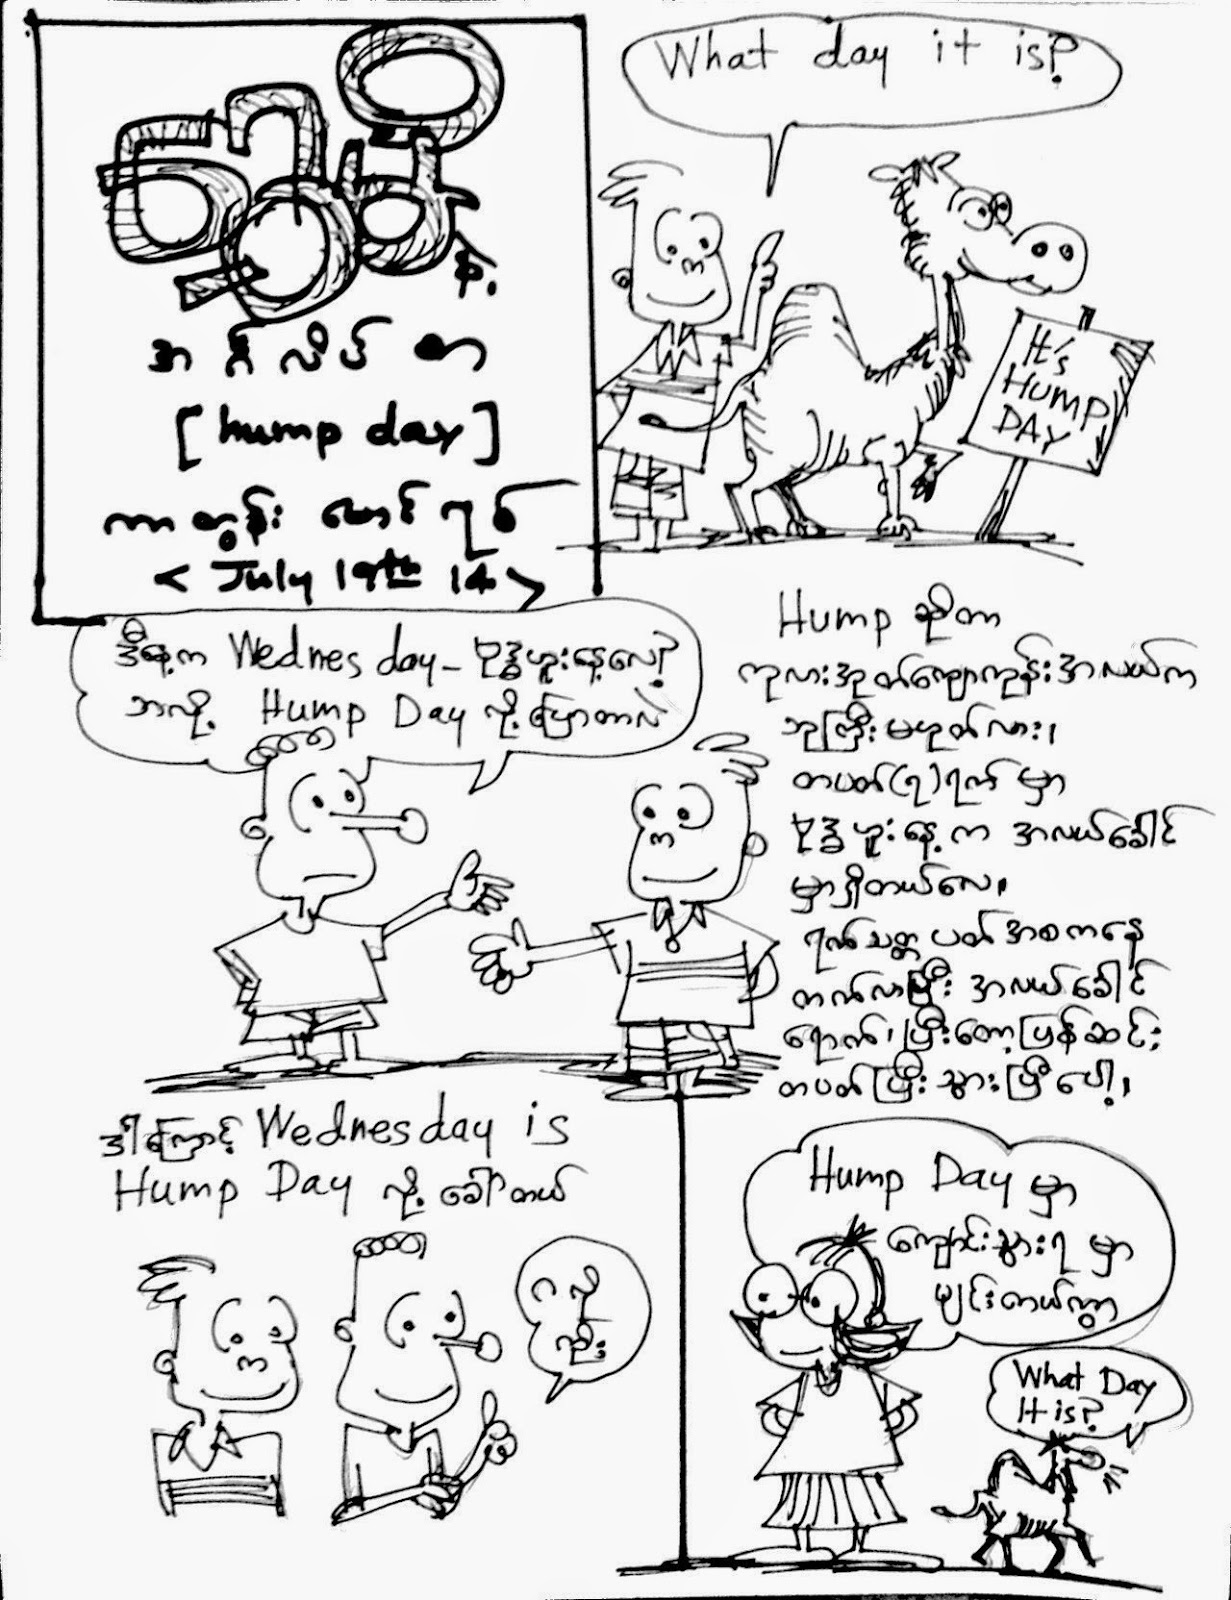 အင်္ဂလိပ် စာ
[hump day]
ကာတွန်း မောင်ရစ်
< July 19th 14 >
What day it is?
It's
HUMP
DAY
ဒီနေ့က Wednesday – ဗုဒ္ဓဟူးနေ့လေ?
ဘာလို့ Hump Day လို့ပြောတာလဲ
Hump ဆိုတာ
ကုလားအုတ်ကျောကုန်းအလယ်က
ဘုကြီးမဟုတ်လား၊
တပတ်(၇)ရက် မှာ
ဗုဒ္ဓဟူးနေ့က အလယ်ခေါင်
မှာရှိတယ်လေ၊
ရက်သတ္တပတ်အစကနေ
တက်လာပြီး အလယ်ခေါင်
ရောက်၊ ပြီးတော့ပြန်ဆင်း
တပတ်ပြီးသွားပြီပေါ့၊
ဒါကြောင့် Wednesday is
Hump Day လို့ ခေါ်တယ်
ဂလို
လည်း
Hump Day မှာ
ကျောင်းသွားရမှာ
ပျင်းတယ်ကွာ
What Day
It is?